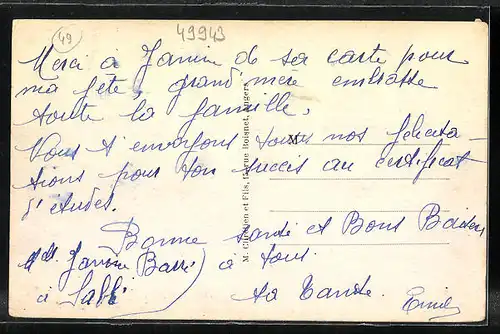 49
49943
Merci à Janine de sa carte pour
ma fête, grand'mère embrasse
toute la famille.
Vous t'envoyons tous nos félicita-
tions pour ton succès au certificat
d'études.
Bonne santé et Bons Baisers
à tous.
Mlle Janine
à
ta tante.
M. Chrétien et Fils, Rue Boisnet, Angers